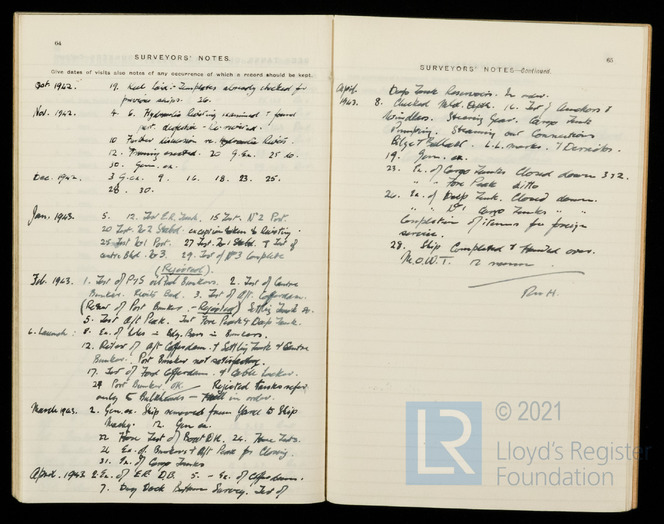 64
SURVEYORS' NOTES.
Give dates of visits also notes of any occurrence of which a record should be kept.
Oct 1942. 19. Keel laid. Templates already checked for
previous ships. 26.
Nov. 1942. 4. 6. Hydraulic Riveting examined & found
not
10 Further discussion re. Hydraulic Rivets.
12. Framing erected. 20 G. Ex. 25 10.
30. Gen. ex.
Dec. 1942. 3 G. ex. 9. 16. 18. 23. 25.
28. 30.
Jan. 1943. 5. 12. Test E.R. Tank. 15 Test No 2 Port.
20 Test No 2 Starbd. exception taken to Riveting.
25 Test No 1 Port. 27 Test No 1 Starbd. & Test of
centre Blkd No 3. 29. Test of No 3 Complete
(Rejected).
Feb. 1943. 1. Test of P/S Bunkers. 2. Test of Centre
Bunker. 3. Test of Aft Cofferdam.
(Retest of Port Bunker - Rejected) Settling Tank
5. Test Aft Peak. Test Fore Peak & Deep Tank.
6. Launch: 8. Ex. of in Bunkers.
12. Retest of Aft Cofferdam. & Settling Tank & Centre
Bunker. Port Bunker not satisfactory.
17. Test of Ford Cofferdam. & Cable Locker.
24 Port Bunker OK. Rejected tanks
only to Bulkheads - in order.
March 1943. 2. Gen. ex. Ship removed from Yard to Ship
12. Gen ex.
22 Hose Test of 24. Hose Tests.
26 Ex. of Bunkers & Aft Peak for Closing.
31. Ex. of Cargo Tanks
April. 1943 2 Ex. of E.R. D.B. 5. - Ex. of Cofferdam.
7. Dry Dock Bottom Survey. Test of
65
SURVEYORS' NOTES—Continued.
April 1943. Deep Tank Reservoirs. In
8. Checked Mld. Depth. 14. Test of Anchors &
Windlass. Steering Gear. Cargo Tank
Pumping. Steaming out Connections
Bilge & Ballast. L.L. marks. & Derricks.
19. Gen. ex.
23. Ex. of Cargo Tanks Closed down 3 & 2.
" " Fore Peak ditto
26. Ex. of Deep Tank. Closed down.
" " No 1 Cargo Tanks " "
Completion of items for foreign
service.
28. Ship Completed & Handed over.
M.O.W.T. 12 noon.
© 2021
LR
Lloyd's Register
Foundation